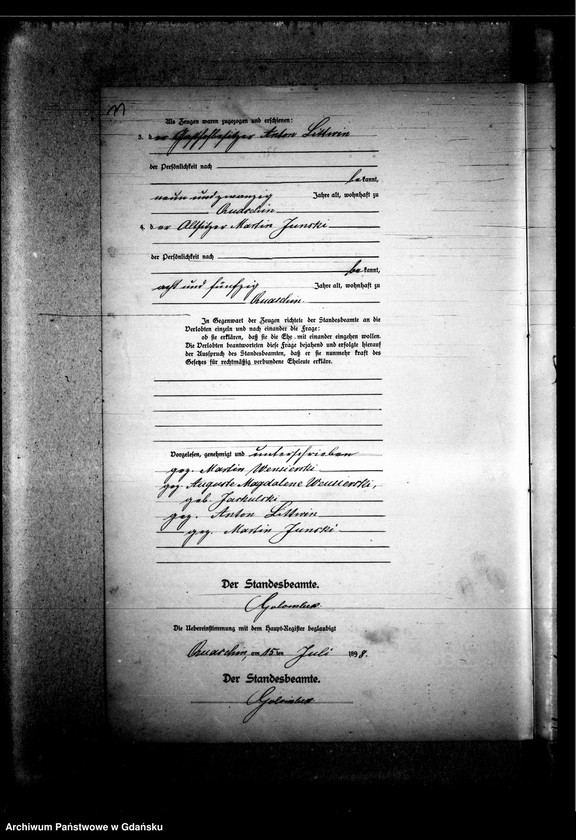 Als Zeugen waren zugezogen und erschienen:
3. der Gasthofbesitzer Anton Littwin
der Persönlichkeit nach
bekannt,
neun und zwanzig Jahre alt, wohnhaft zu
Quaschin
4. der Altsitzer Martin Junski
der Persönlichkeit nach
bekannt,
acht und fünfzig Jahre alt, wohnhaft zu
Quaschin
In Gegenwart der Zeugen richtete der Standesbeamte an die
Verlobten einzeln und nach einander die Frage:
ob sie erklären, daß sie die Ehe mit einander eingehen wollen.
Die Verlobten beantworteten diese Frage bejahend und erfolgte hierauf
der Ausspruch des Standesbeamten, daß er sie nunmehr kraft des
Gesetzes für rechtmäßig verbundene Eheleute erkläre.
Vorgelesen, genehmigt und unterschrieben
gez. Martin Wensierski
gez. Auguste Magdalene Wensierski,
geb. Jaskulski
gez. Anton Littwin
gez. Martin Junski
Der Standesbeamte.
Golombek
Die Uebereinstimmung mit dem Haupt-Register beglaubigt
Quaschin, am 15ten Juli 1898.
Der Standesbeamte.
Golombek
Archiwum Państwowe w Gdańsku